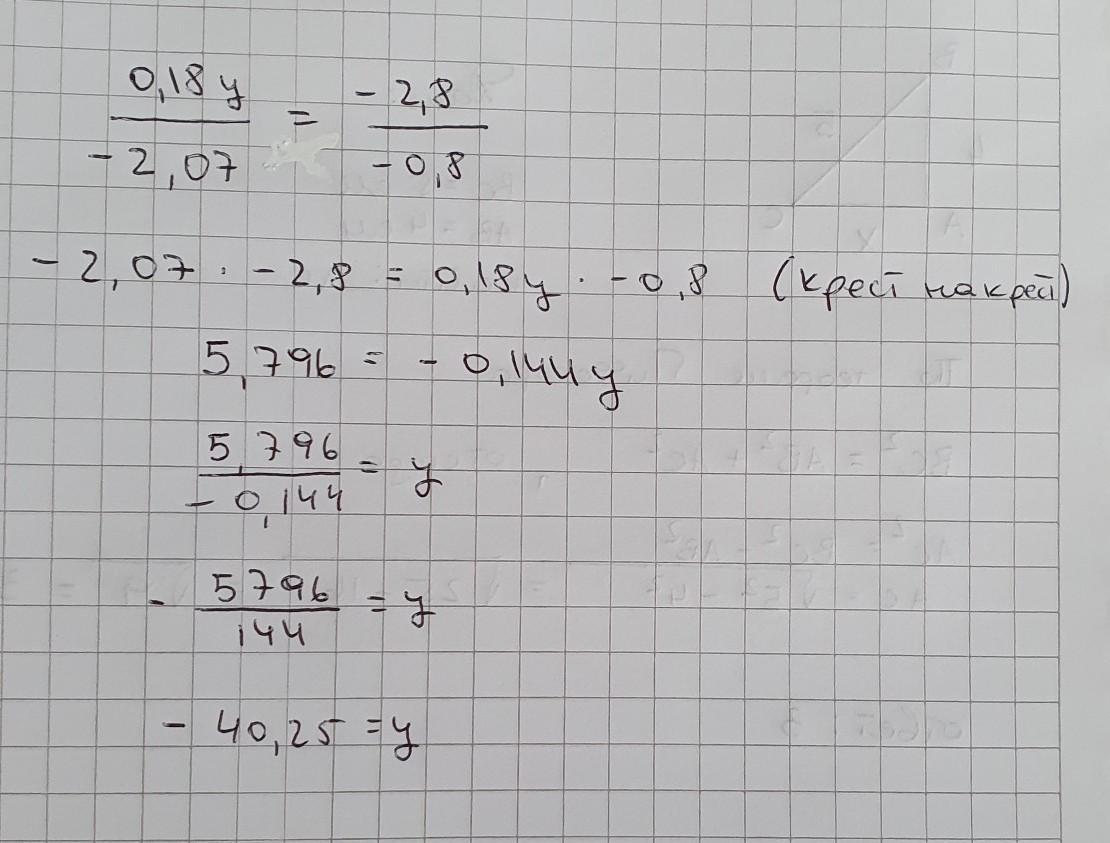 0,18y / -2,07 = -2,8 / -0,8
-2,07 · -2,8 = 0,18y · -0,8 (крест накрест)
5,796 = -0,144y
5,796 / -0,144 = y
- 5796 / 144 = y
- 40,25 = y